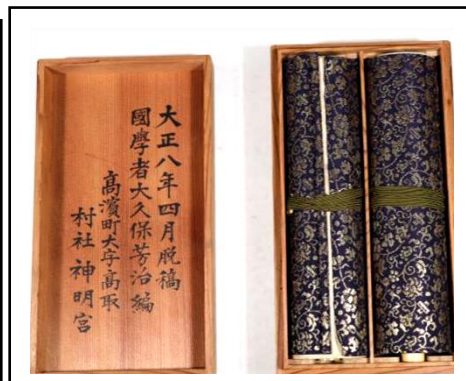 大正八年四月脱稿
國學者大久保芳治編
高濱町大字高取
村社 神明宮